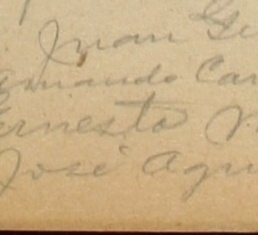 Juan Gu
rnando Car
Ernesto
José Agu